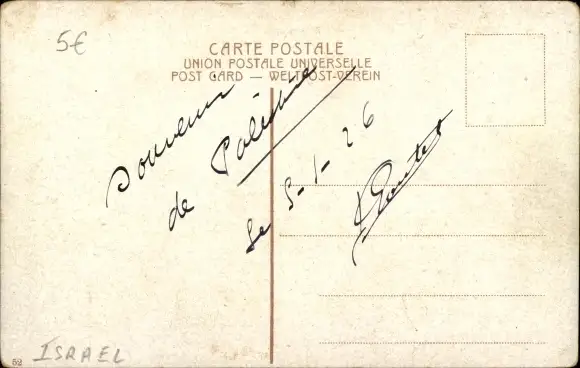 5€
CARTE POSTALE
UNION POSTALE UNIVERSELLE
POST CARD — WELTPOST-VEREIN
Souvenir
de Palestine
le 5-1-26
52
ISRAEL